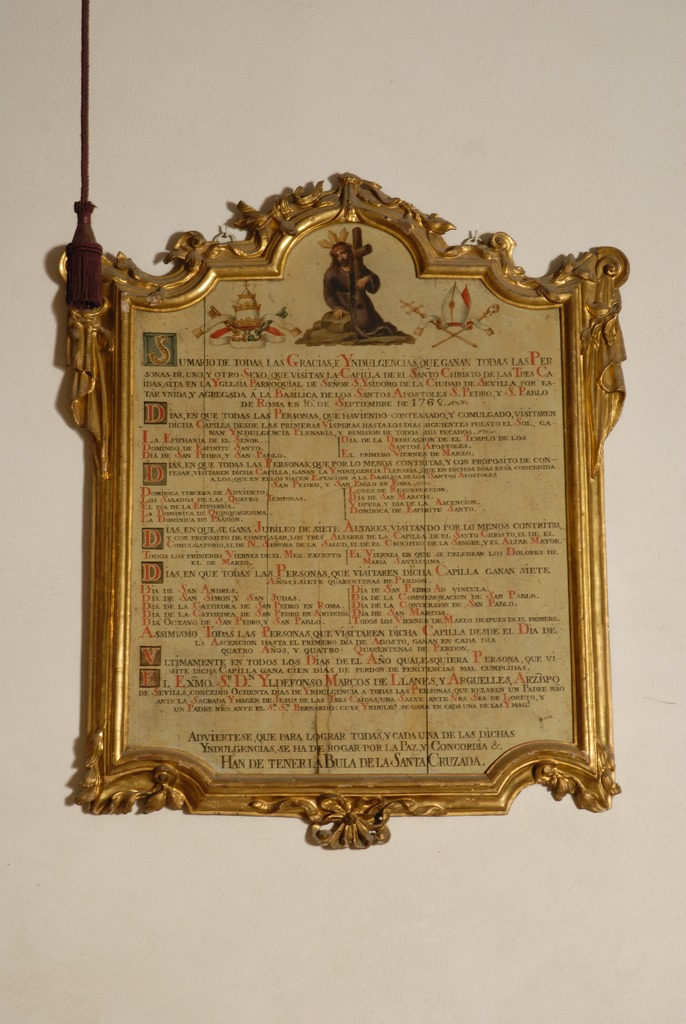 SUMARIO DE TODAS LAS GRACIAS, E YNDULGENCIAS, QUE GANAN TODAS LAS PER
SONAS DE UNO, Y OTRO SEXO, QUE VISITAN LA CAPILLA DE EL SANTO CHRISTO DE LAS TRES CA
IDAS, SITA EN LA YGLESIA PARROQUIAL DE SEÑOR S. YSIDORO DE LA CIUDAD DE SEVILLA POR ES-
TAR VNIDA, Y AGREGADA A LA BASILICA DE LOS SANTOS APOSTOLES S. PEDRO, Y S. PABLO
DE ROMA EN 16 DE SEPTIEMBRE DE
DIAS, EN QUE TODAS LAS PERSONAS, QUE HAVIENDO CONFESSADO, Y COMULGADO, VISITAREN
DICHA CAPILLA DESDE LAS PRIMERAS VISPERAS HASTA LOS DIAS SIGUIENTES PUESTO EL SOL, GA-
NAN YNDULGENCIA PLENARIA, Y REMISION DE TODOS SUS PECADOS.
LA EPIPHANIA DE EL SEÑOR. DIA DE LA DEDICACION DE EL TEMPLO DE LOS
DOMINGO DE ESPIRITU SANTO. SANTOS APOSTOLES.
DIA DE SAN PEDRO, Y SAN PABLO. EL PRIMERO VIERNES DE MARZO.
DIAS, EN QUE TODAS LAS PERSONAS, QUE POR LO MENOS CONTRITAS, Y CON PROPOSITO DE CON-
FESAR, VISITAREN DICHA CAPILLA, GANAN LA YNDULGENCIA PLENARIA, QUE EN DICHOS DIAS ESTA CONCEDIDA
A LOS, QUE EN ELLOS HACEN ESTACION A LA BASILICA DE LOS SANTOS APOSTOLES
SAN PEDRO, Y SAN PABLO EN ROMA.
DOMINICA TERCERA DE ADVIENTO. LUNES DE RESURRECCION.
LOS SABADOS DE LAS QUATRO TEMPORAS. DIA DE SAN MARCOS.
EL DIA DE LA EPIPHANIA. VISPERA, Y DIA DE LA ASCENCION.
LA DOMINICA DE QUINQUAGESIMA. DOMINICA DE ESPIRITU SANTO.
LA DOMINICA DE PASSION.
DIAS, EN QUE SE GANA JUBILEO DE SIETE ALTARES, VISITANDO POR LO MENOS CONTRITOS,
Y CON PROPOSITO DE CONFESSAR, LOS TRES ALTARES DE LA CAPILLA DE EL SANTO CHRISTO, EL DE EL
COMULGATORIO, EL DE N. SEÑORA DE LA SALUD, EL DE EL CRUCIFIXO DE LA SANGRE, Y EL ALTAR MAYOR.
TODOS LOS PRIMEROS VIERNES DE EL MES EXCEPTO EL VIERNES EN QUE SE CELEBRAN LOS DOLORES DE
EL DE MARZO. MARIA SANTISSIMA.
DIAS, EN QUE TODAS LAS PERSONAS, QUE VISITAREN DICHA CAPILLA GANAN SIETE
AÑOS, I SIETE QUARENTENAS DE PERDON.
DIA DE SAN ANDRES. DIA DE SAN PEDRO AD VINCULA.
DIA DE SAN SIMON, Y SAN JUDAS. DIA DE LA COMMEMORACION DE SAN PABLO.
DIA DE LA CATHEDRA DE SAN PEDRO EN ROMA. DIA DE LA CONVERSION DE SAN PABLO.
DIA DE LA CATHEDRA DE SAN PEDRO EN ANTIOCHIA. DIA DE SAN MARCOS.
DIA OCTAVO DE SAN PEDRO, Y SAN PABLO. TODOS LOS VIERNES DE MARZO DESPUES DE EL PRIMERO.
ASSIMISMO TODAS LAS PERSONAS, QUE VISITAREN DICHA CAPILLA DESDE EL DIA DE
LA ASCENCION HASTA EL PRIMERO DIA DE AGOSTO, GANAN EN CADA DIA
QUATRO AÑOS, Y QUATRO QUARENTENAS DE PERDON.
VLTIMAMENTE EN TODOS LOS DIAS DE EL AÑO QUALESQUIERA PERSONA, QUE VI-
SITE DICHA CAPILLA GANA CIEN DIAS DE PERDON DE PENITENCIAS MAL CUMPLIDAS.
EL EXMO. SR. DN. YLDEFONSO MARCOS DE LLANES, Y ARGUELLES, ARZBPO
DE SEVILLA, CONCEDIO OCHENTA DIAS DE YNDULGENCIA A TODAS LAS PERSONAS, QUE REZAREN UN PADRE NRO
ANTE LA SAGRADA YMAGEN DE JESUS DE LAS TRES CAIDAS, UNA SALVE ANTE NRA SRA DE LORETO, Y
UN PADRE NRO. ANTE EL SR. SN. BERNARDO: CUYA YNDULGA. SE GANA EN CADA UNA DE LAS YMAGS.
ADVIERTESE, QUE PARA LOGRAR TODAS, Y CADA UNA DE LAS DICHAS
YNDULGENCIAS, SE HA DE ROGAR POR LA PAZ, Y CONCORDIA &c.
HAN DE TENER LA BULA DE LA SANTA CRUZADA.